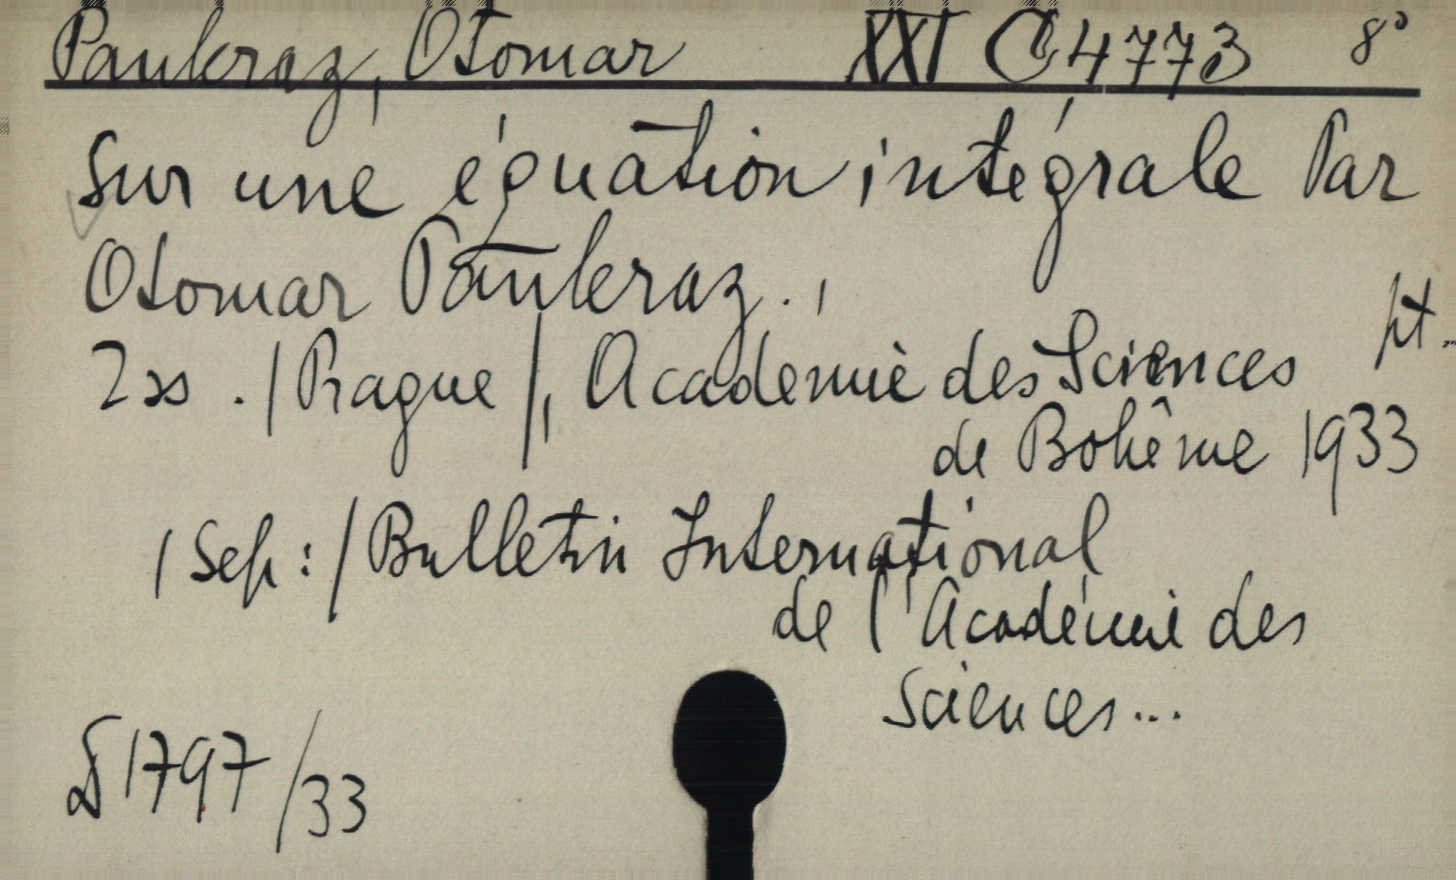 Pankraz, Otomar XXI C 4773 8°
Sur une équation intégrale Par
Otomar Pankraz.,
2 ss. /Prague/, Académie des Sciences
de Bohême 1933
/Sep:/ Bulletin International
de l'Académie des
Sciences...
1797/33